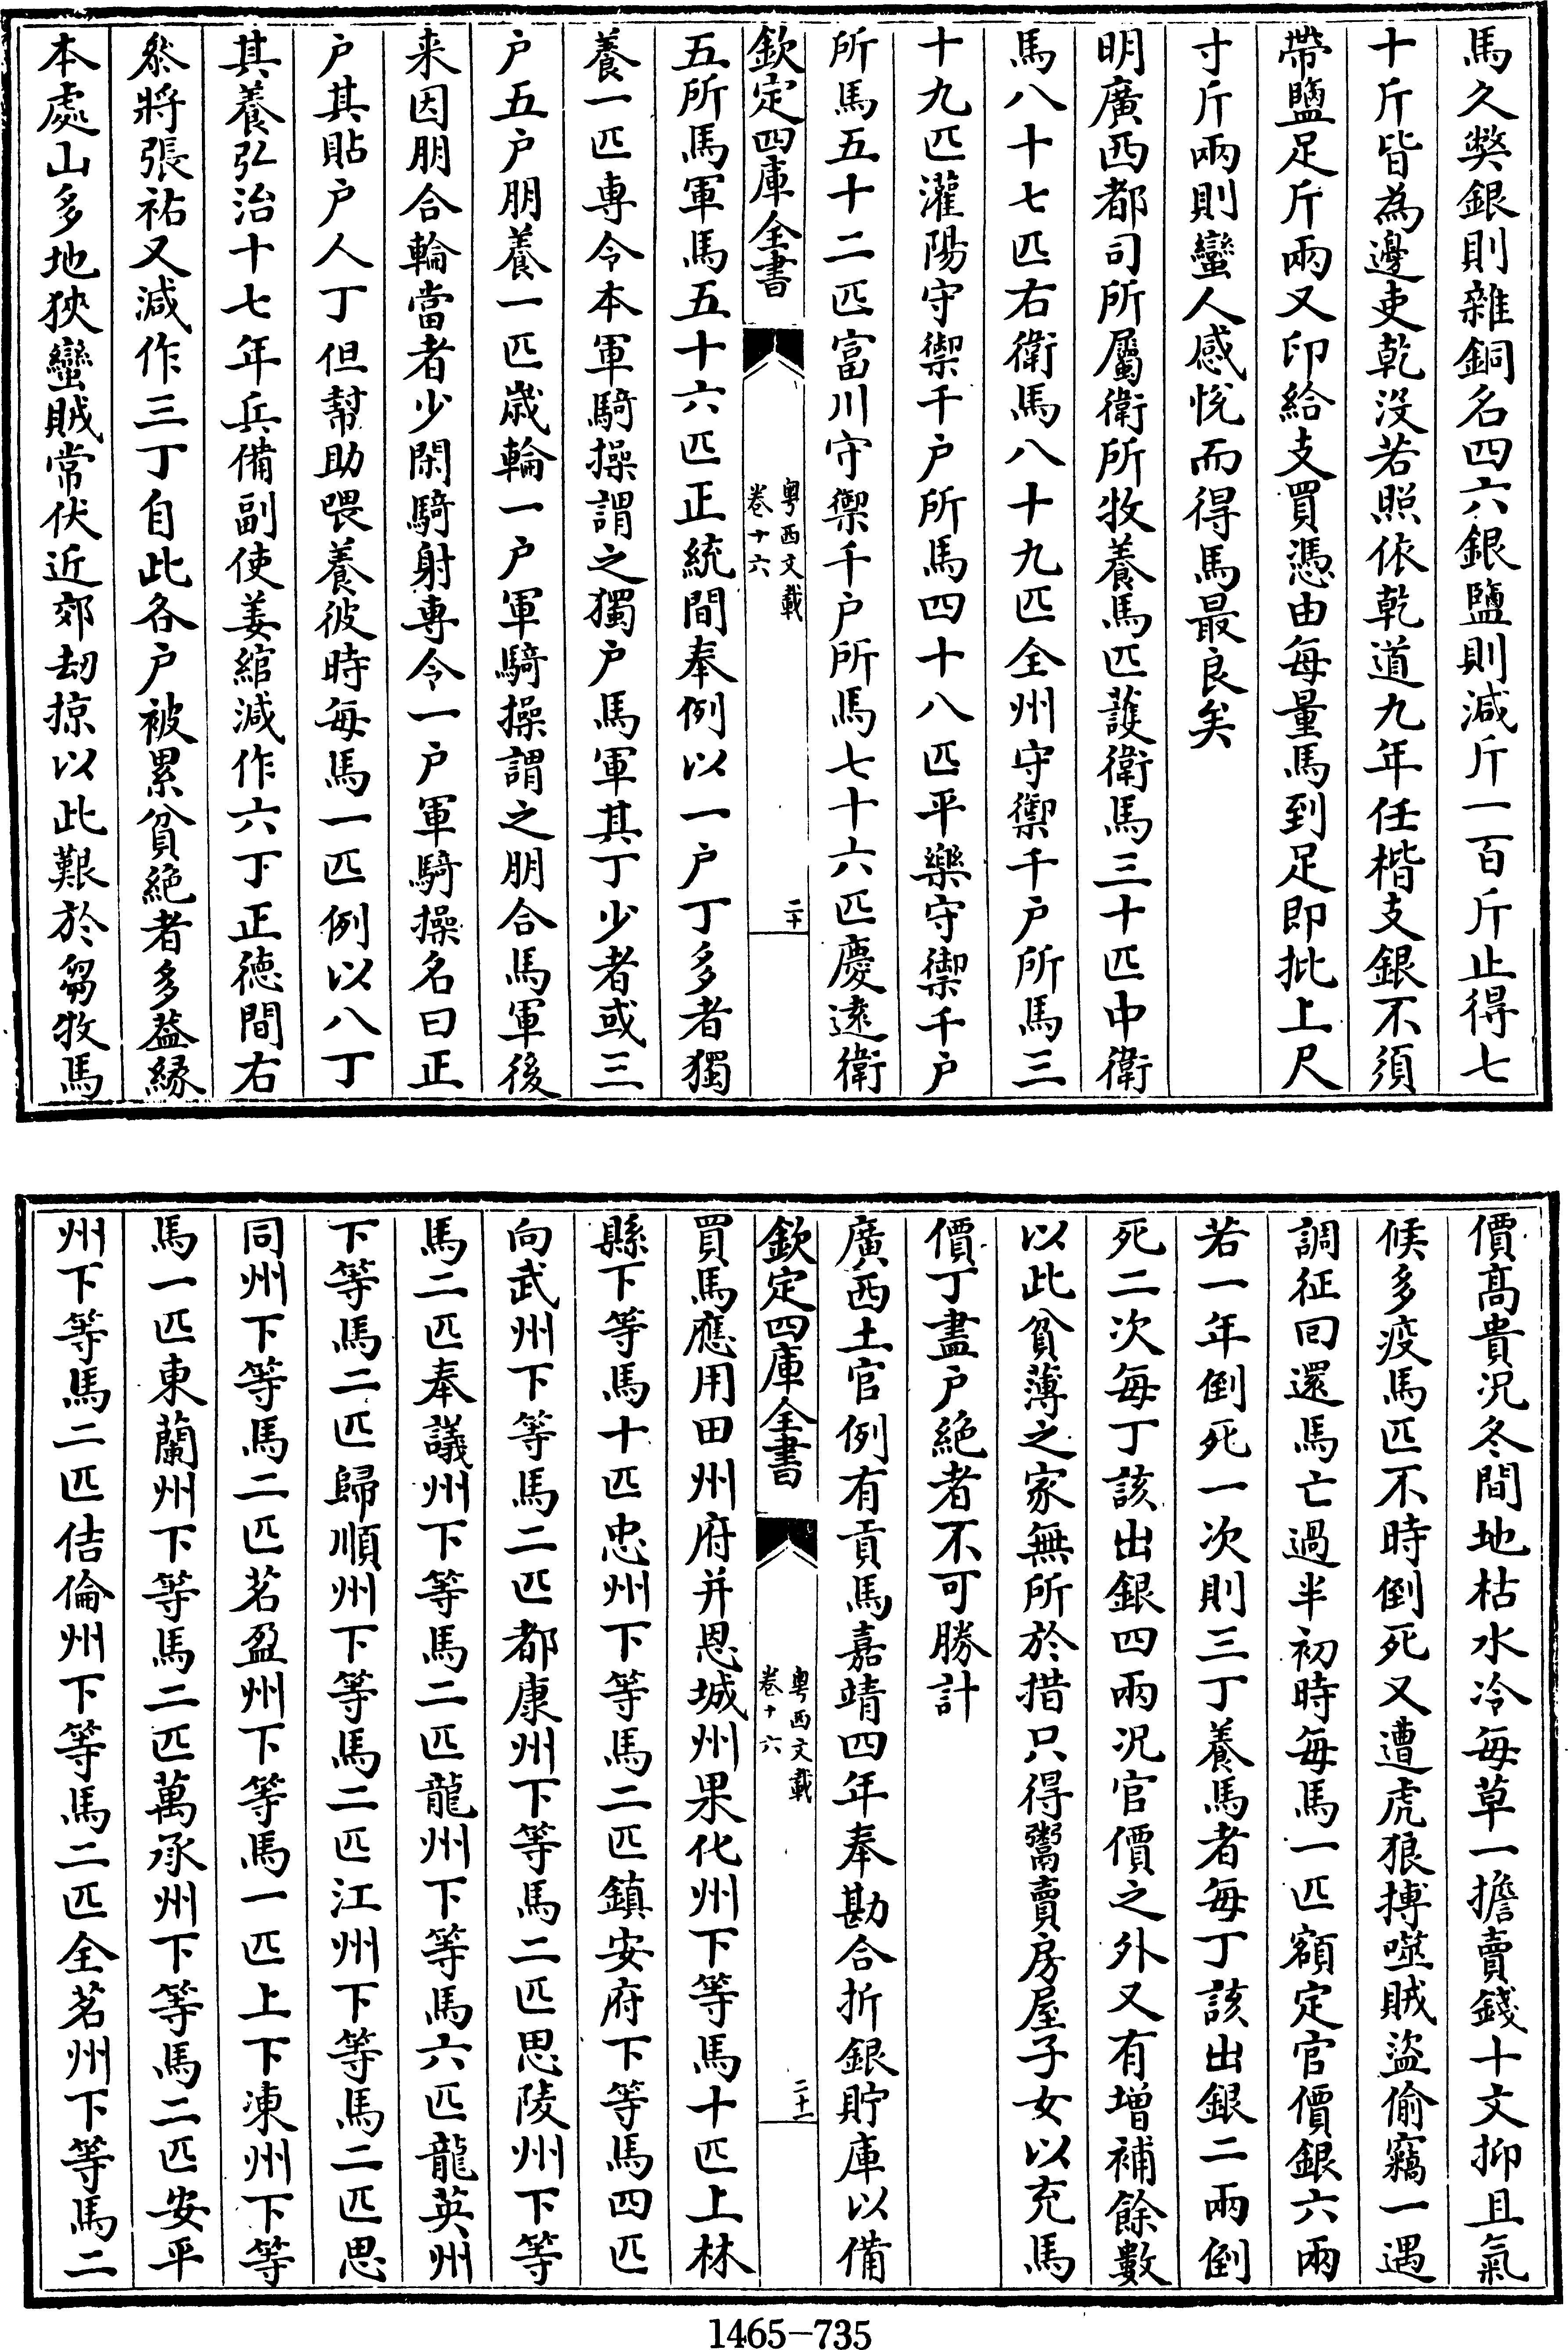 馬久弊銀則雜銅名四六銀鹽則減斤一百斤止得七
十斤皆為邊吏乾沒若照依乾道九年任楷支銀不須
帶鹽足斤兩又印給支買憑由每量馬到足即批上尺
寸斤兩則蠻人感悅而得馬最良矣
明廣西都司所屬衛所牧養馬匹護衛馬三十匹中衛
馬八十七匹右衛馬八十九匹全州守禦千户所馬三
十九匹灌陽守禦千户所馬四十八匹平樂守禦千户
所馬五十二匹富川守禦千户所馬七十六匹慶逺衛
欽定四庫全書
粤西文載
卷十六
二十
五所馬軍馬五十六匹正統間奉例以一户丁多者獨
養一匹専令本軍騎操謂之獨户馬軍其丁少者或三
户五户朋養一匹歳輪一户軍騎操謂之朋合馬軍後
来因朋合輪當者少閑騎射専令一户軍騎操名曰正
户其貼户人丁但幫助喂養彼時每馬一匹例以八丁
其養弘治十七年兵備副使姜綰減作六丁正徳間右
叅將張祐又減作三丁自此各户被累貧絶者多葢緣
本處山多地狹蠻賊常伏近郊刼掠以此艱於芻牧馬
價髙貴况冬間地枯水冷每草一擔賣錢十文抑且氣
候多疫馬匹不時倒死又遭虎狼搏噬賊盜偷竊一遇
調征回還馬亡過半初時每馬一匹額定官價銀六兩
若一年倒死一次則三丁養馬者每丁該出銀二兩倒
死二次每丁該出銀四兩况官價之外又有增補餘數
以此貧薄之家無所於措只得鬻賣房屋子女以充馬
價丁盡户絶者不可勝計
廣西土官例有貢馬嘉靖四年奉勘合折銀貯庫以備
欽定四庫全書
粤西文載
卷十六
二十一
買馬應用田州府并恩城州果化州下等馬十匹上林
縣下等馬十匹忠州下等馬二匹鎮安府下等馬四匹
向武州下等馬二匹都康州下等馬二匹思陵州下等
馬二匹奉議州下等馬二匹龍州下等馬六匹龍英州
下等馬二匹歸順州下等馬二匹江州下等馬二匹思
同州下等馬二匹茗盈州下等馬一匹上下凍州下等
馬一匹東蘭州下等馬二匹萬承州下等馬二匹安平
州下等馬二匹佶倫州下等馬二匹全茗州下等馬二
1465-735